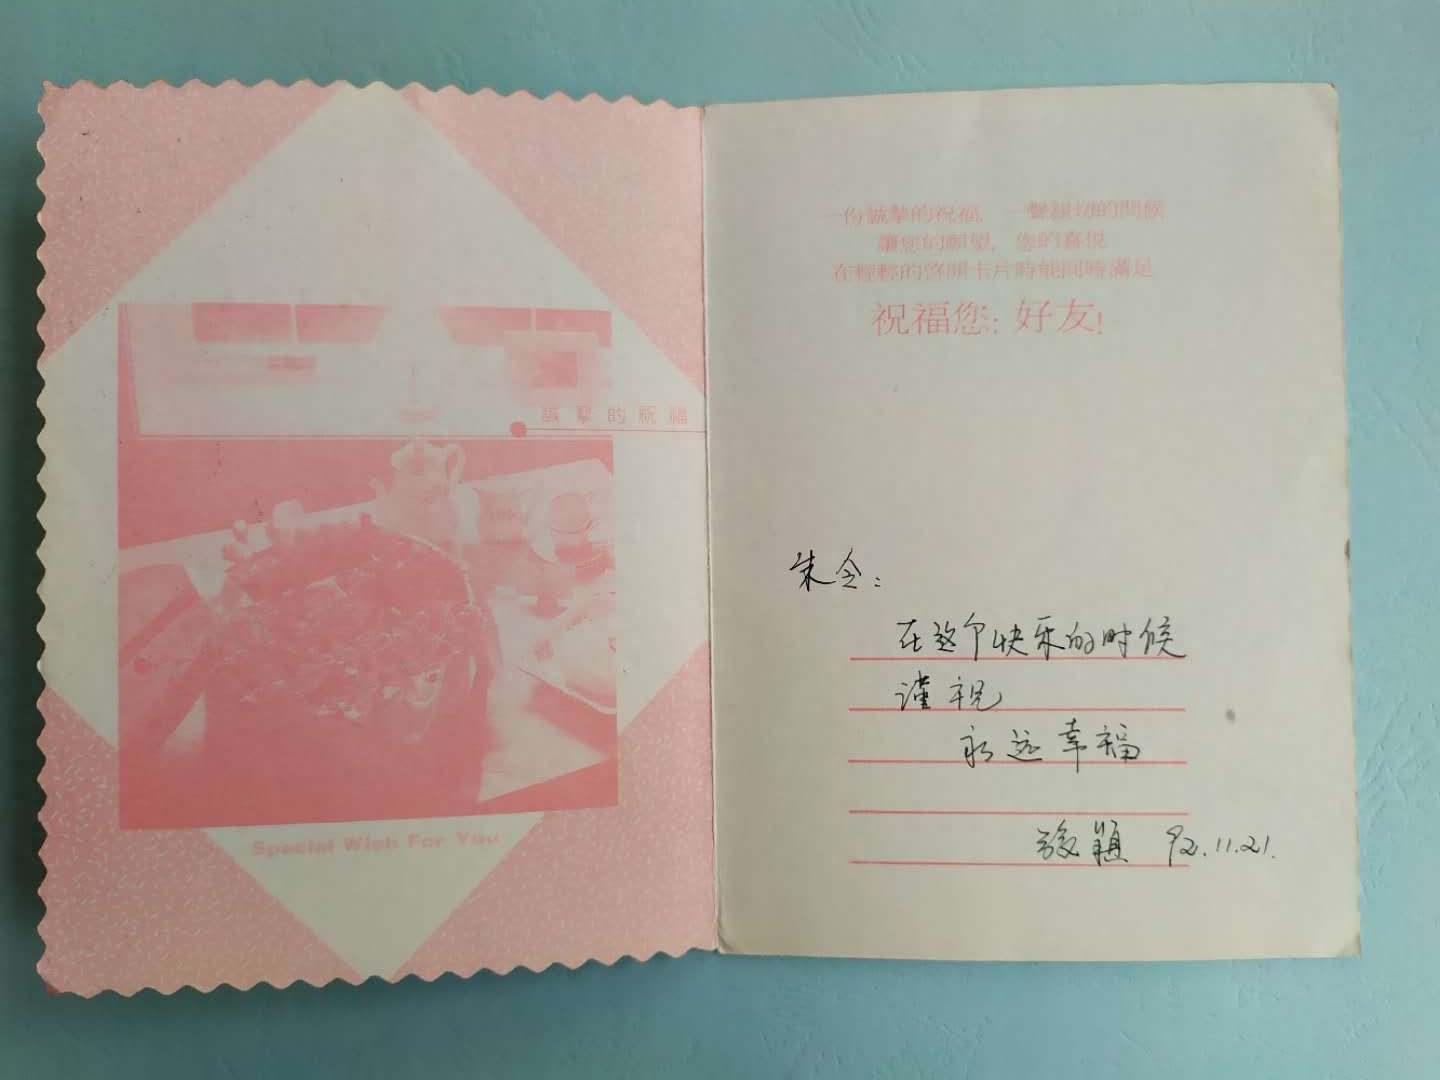 誠摯的祝福
Special Wish For You
一份誠摯的祝福，一聲親切的問候
讓您的願望，您的喜悅
在輕輕的啓開卡片時能同時滿足
祝福您：好友！
朱令：
在这个快乐的时候
谨祝
永远幸福
颖 92.11.21.